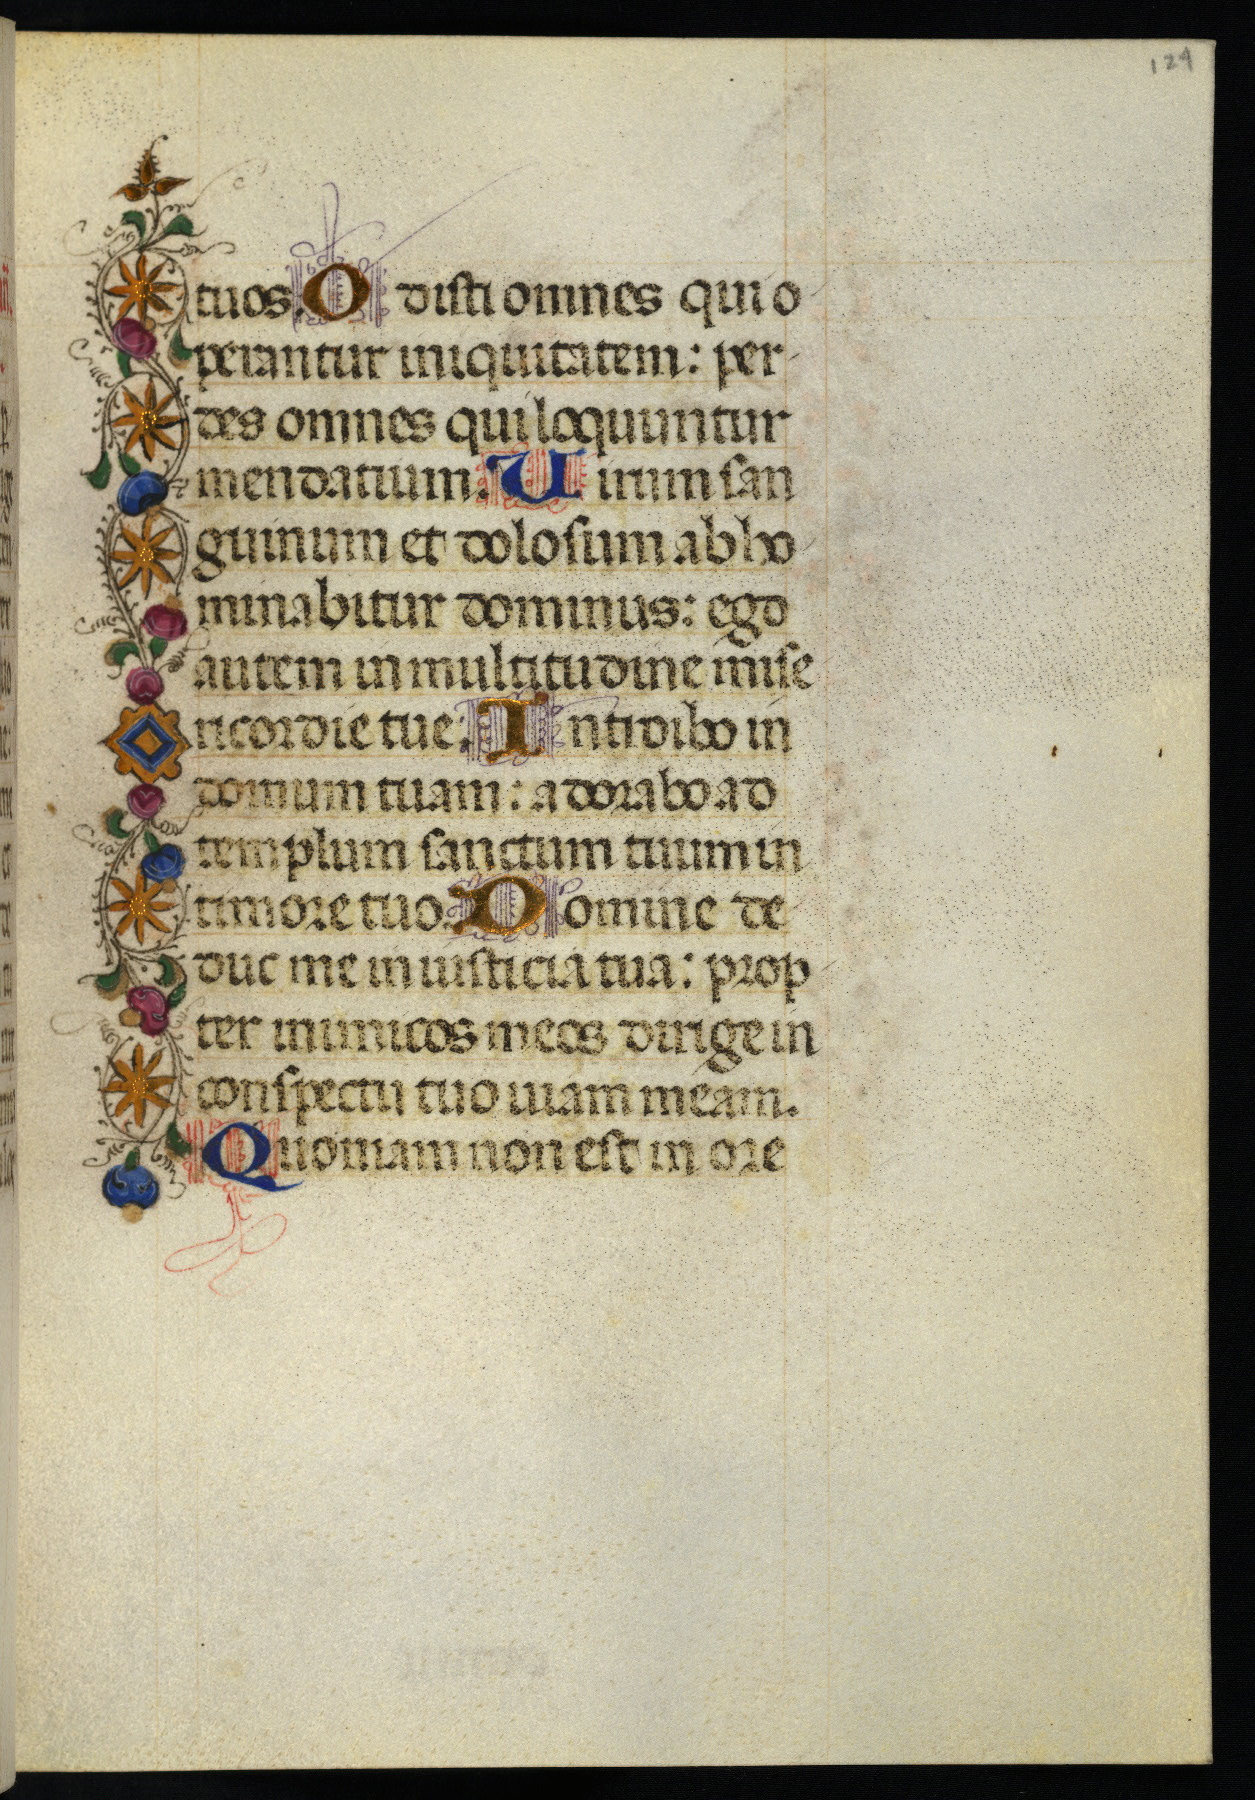 124
tuos. Odisti omnes qui o
perantur iniquitatem: per
des omnes qui loquuntur
mendatium. Uirum san
guinum et dolosum abho
minabitur dominus: ego
autem in multitudine mise
ricordie tue: Introibo in
domum tuam: adorabo ad
templum sanctum tuum in
timore tuo. Domine de
duc me in iusticia tua: prop
ter inimicos meos dirige in
conspectu tuo uiam meam.
Quoniam non est in ore